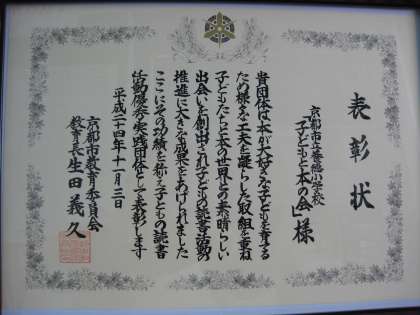 表彰状
京都市立養徳小学校
「子どもと本の会」様
貴団体は本が大好きな子どもを育てる
ため様々な工夫を凝らした取組を重ね
子どもたちと本の世界との素晴らしい
出会いを創出され子どもの読書活動の
推進に大きな成果をあげられました
ここにその功績を称え子どもの読書
活動優秀実践団体として表彰します
平成二十四年十一月三日
京都市教育委員会
教育長 生田義久